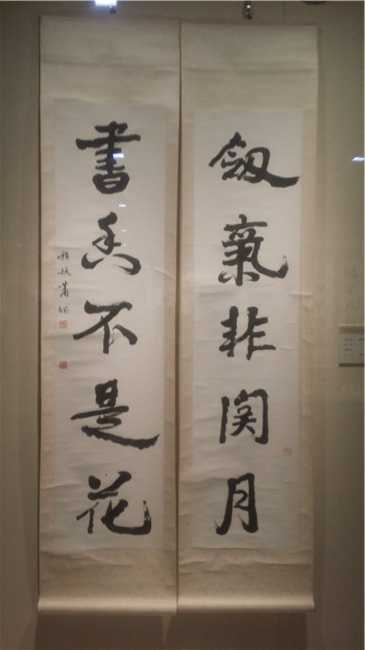 劔氣非関月
書香不是花